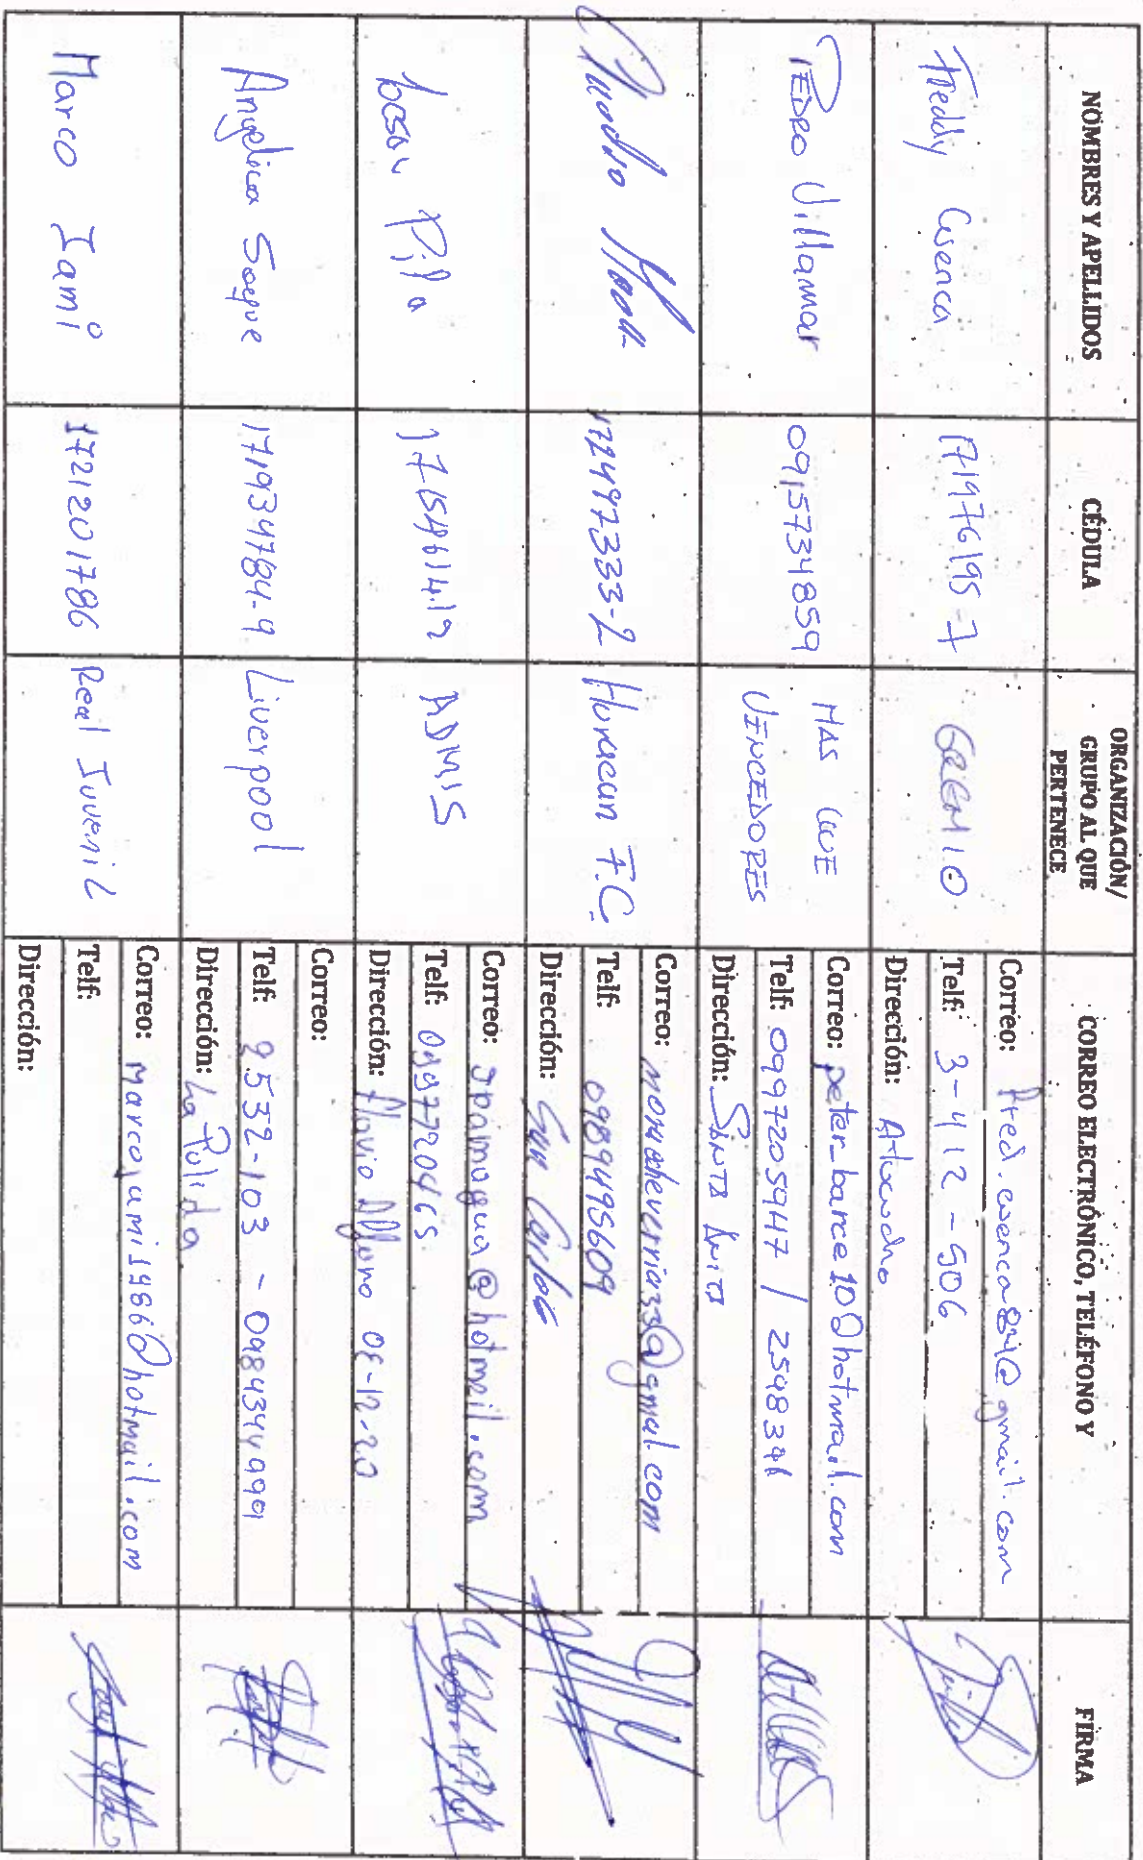 NOMBRES Y APELLIDOS
CÉDULA
ORGANIZACIÓN/
GRUPO AL QUE
PERTENECE
CORREO ELECTRÓNICO, TELÉFONO Y
FIRMA
Freddy Cuenca
171976195-7
GREMIO
Correo: Fred.cuenca84@gmail.com
Telf: 3-412-506
Dirección: Atucucho
PEDRO Villamar
0915734859
MAS QUE
VINCEDORES
Correo: peter_barce10@hotmail.com
Telf: 0997205947 / 2548391
Dirección: SANTA ANITA
172497333-2
Huracan F.C.
Correo: monicaheverria33@gmail.com
Telf: 0989495609
Dirección: San Carlos
Pilla
ADMIS
Correo: jpamagua@hotmail.com
Telf: 0997720465
Dirección: Flavio Alfaro 0E-12-20
Angelica Soque
171934784-9
Liverpool
Correo:
Telf: 2532-103 - 0984344991
Dirección: La Pulida
Marco Iami
1721201786
Real Juvenil
Correo: marcojami1986@hotmail.com
Telf:
Dirección: